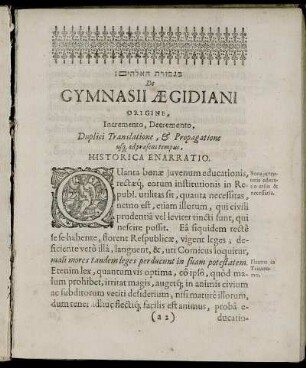 De
GYMNASII ÆGIDIANI
ORIGINE,
Incremento, Decremento,
Duplici Translatione, & Propagatione
usq; ad præsens tempus,
HISTORICA ENARRATIO.
QUanta bonæ juvenum educationis,
rectæq; earum institutionis in Re-
publ. utilitas sit, quanta necessitas,
nemo est, etiam illorum, qui civili
prudentiâ vel leviter tincti sunt, qui
nescire possit. Ea siquidem rectè
se se habente, florent Respublicæ, vigent leges;
deficiente verò illâ, languent, &, uti Comicus loquitur,
mali mores tandem leges perducunt in suam potestatem.
Etenim lex, quantumvis optima, eò ipsô, quòd ma-
lum prohibet, irritat magis, augetq; in animis civium
ac subditorum vetiti desiderium, nisi maturè illorum,
dum tener adhuc flectiq; facilis est animus, probâ e-
(a 2) ducatio-